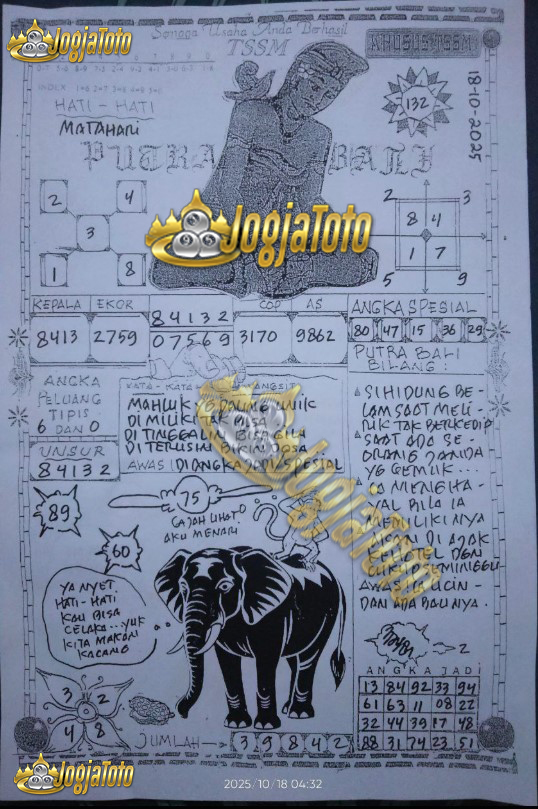 JogjaToto
Semoga Usaha Anda Berhasil
TSSM
KHUSUS TSSM
INDEX
HATI - HATI
MATAHARI
132
18-10-2025
PUTRA BALI
2 4
3
1 8
2 3
8 4
1 7
5 9
JogjaToto
KEPALA EKOR
8413 2759
84132
07569
COP AS
3170 9862
ANGKA SPESIAL
80 47 15 36 29
PUTRA BALI
BILANG :
ANGKA
PELUANG
TIPIS
6 DAN 0
UNSUR
84132
KATA - KATA
MAHLUK YG PALING UNIK
DI MILIKI BISA
DI TINGGALIN BISA GILA
DI TERUSIN BIKIN DOSA
AWAS DIANGKA SPESIAL
SIHIDUNG BE-
LAM SAAT MELI-
RIK TAK BERKEDIP
SAAT ADA SE-
ORANG JANDA
YG GEMUK...
MENGHA-
YAL BILA IA
MEMILIKINYA
AKAN DI AJAK
KEHOTEL DGN
SEMINGGU
AWAS
DAN ADA BAUNYA.
JogjaToto
89
75
GAJAH LIHATO
AKU MENARI
60
YA NYET
HATI-HATI
KAU BISA
CELAKA...YUK
KITA MAKAN
KACANG
2
ANGKA JADI
13 84 92 33 94
61 63 11 08 22
32 44 39 17 48
88 31 74 23 51
3 2
4 8
JUMLAH 3 9 8 4 2
JogjaToto
2025/10/18 04:32